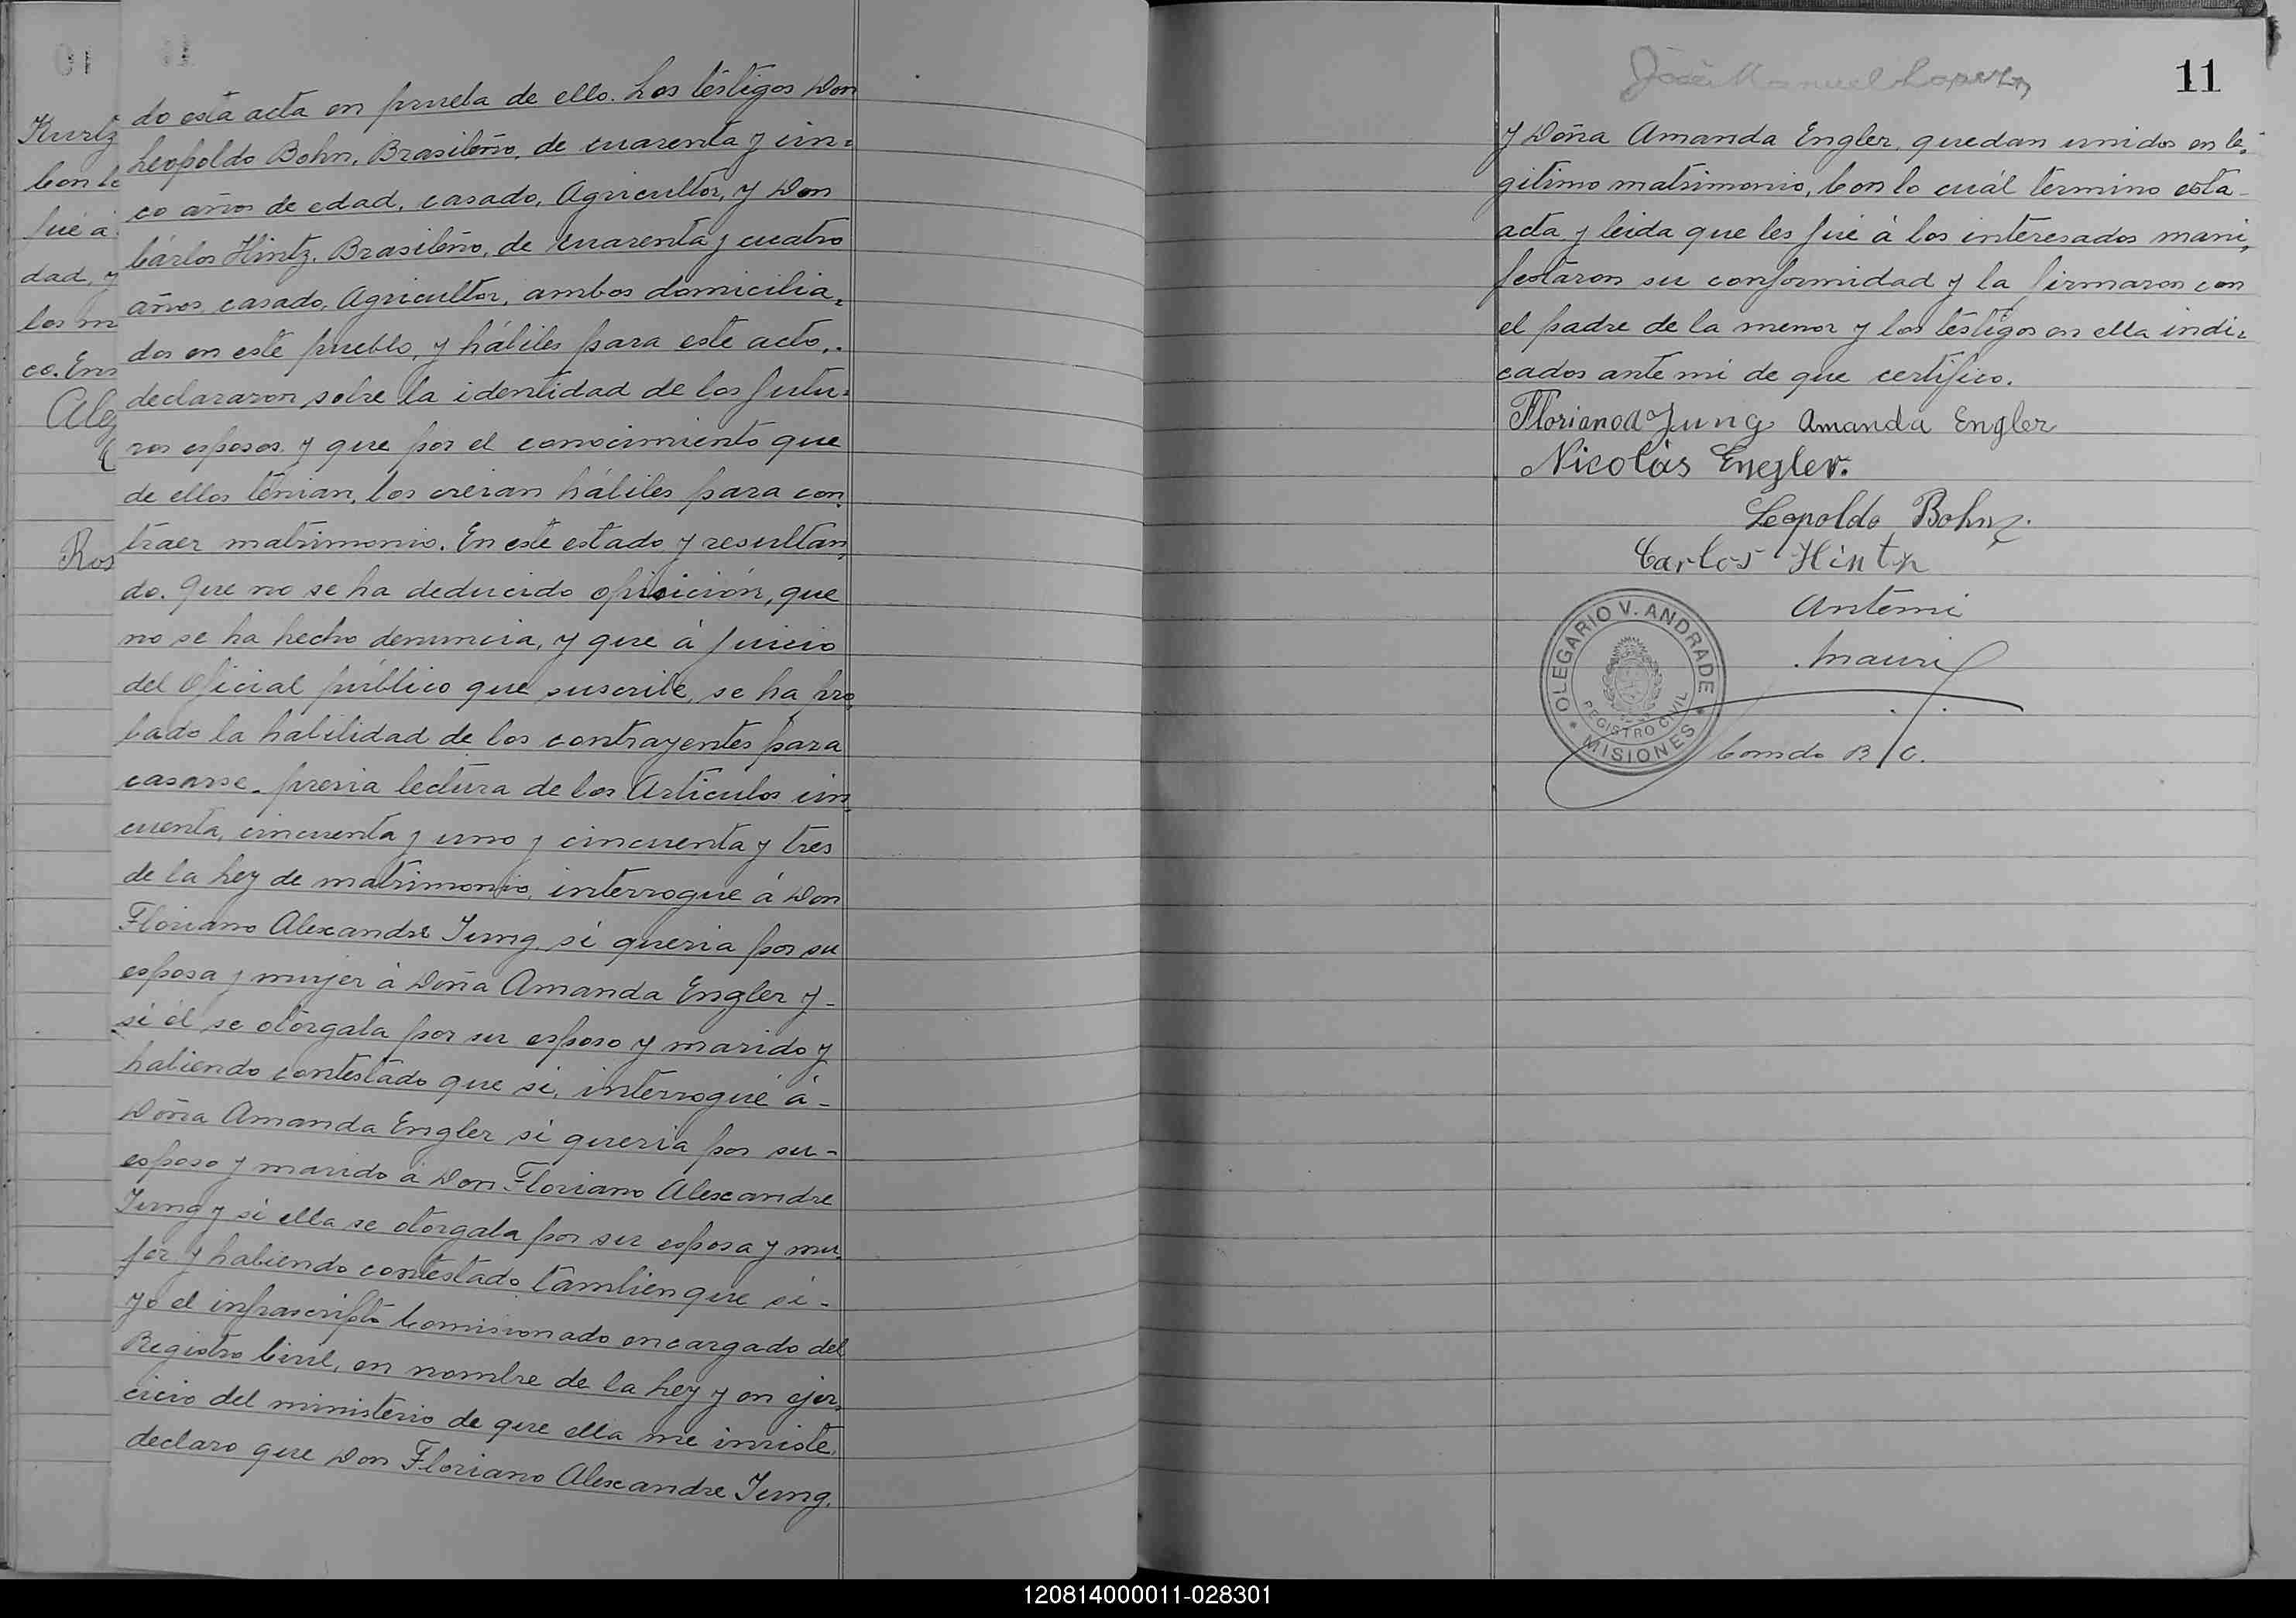 Kurtz
Con lo
fué á
dad, y
los m
co. En
Ale
Ros
do esta acta en prueba de ello. Los testigos Don
Leopoldo Bohn, Brasileño, de cuarenta y cin=
co años de edad, casado, Agricultor, y Don
Cárlos Hintz, Brasileño, de cuarenta y cuatro
años, casado, Agricultor, ambos domicilia=
dos en este pueblo, y hábiles para este acto,
declararon sobre la identidad de los futu=
ros esposos, y que por el conocimiento que
de ellos tenian, los creian hábiles para con
traer matrimonio. En este estado y resultan
do. Que no se ha deducido oposición, que
no se ha hecho denuncia, y que á juicio
del Oficial público que suscribe, se ha pro
bado la habilidad de los contrayentes para
casarse, previa lectura de los Artículos cin
cuenta, cincuenta y uno y cincuenta y tres
de la Ley de matrimonio, interrogue á Don
Floriano Alexandre Jung, si queria por su
esposa y mujer á Doña Amanda Engler y-
si él se otorgaba por su esposo y marido y
habiendo contestado que si, interrogué á-
Doña Amanda Engler si queria por su-
esposo y marido á Don Floriano Alexandre
Jung y si ella se otorgaba por su esposa y mu
jer y habiendo contestado tambien que si-
yo el infrascripto Comisionado encargado del
Registro Civil, en nombre de la Ley y en ejer
cicio del ministerio de que ella me inviste,
declaro que Don Floriano Alexandre Jung,
José Manuel
11
y Doña Amanda Engler, quedan unidos en le=
gitimo matrimonio, Con lo cuál termino esta-
acta y leida que les fué á los interesados mani
festaron su conformidad y la firmaron con
el padre de la menor y los testigos en ella indi=
cados ante mi de que certifico.
Floriano A Jung Amanda Engler
Nicolás Engler.
Leopoldo Bohn
Carlos Hintz
Antemi
OLEGARIO V. ANDRADE
REGISTRO CIVIL
* MISIONES *
Comdo R/C.
120814000011-028301